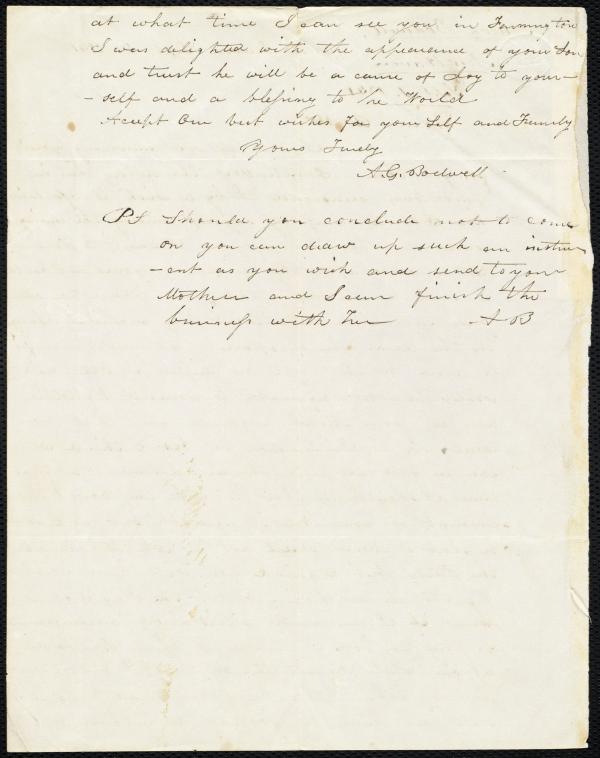 at what time I can see you in Farmington
I was delighted with the appearance of your Son
and trust he will be a cause of Joy to your-
-self and a blessing to the World
Accept Our best wishes for your Self and Family
Yours Truely
A.G. Bodwell
PS Should you conclude not to come
on you can draw up such an instrum
-ent as you wish and send to your
Mother and I can finish the
buiness with her A B